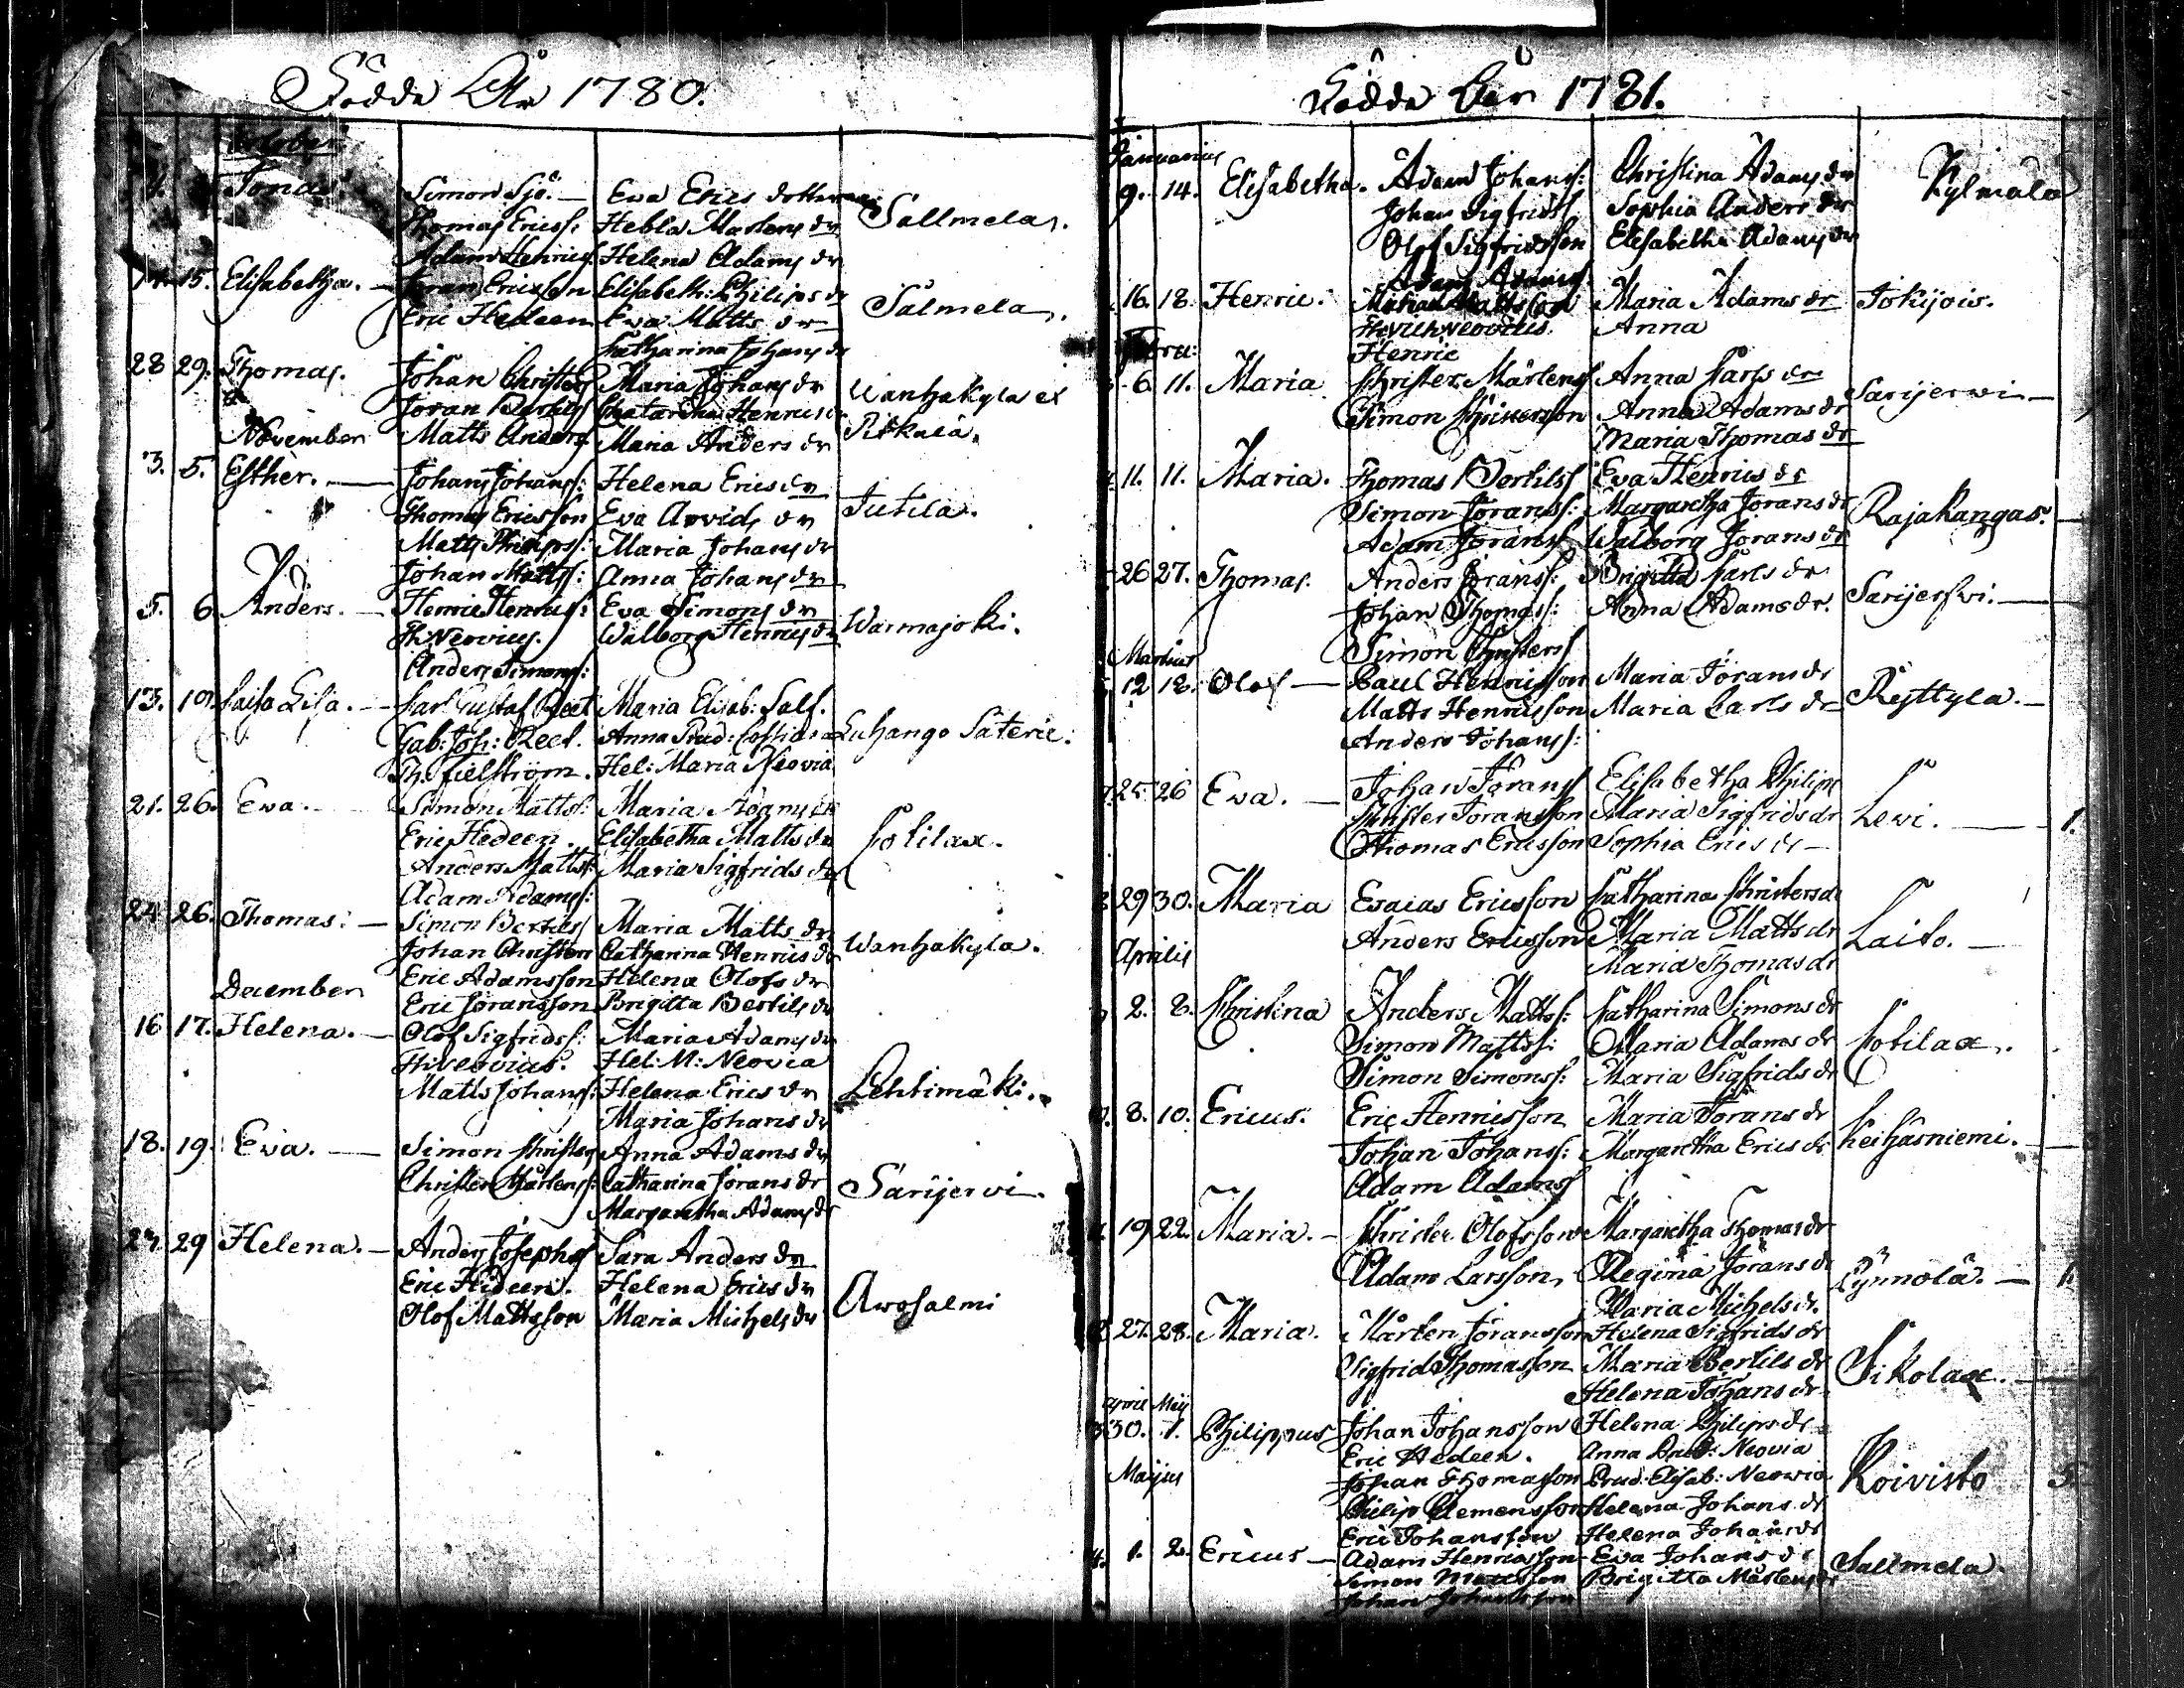 Födde År 1780.
October
4. Jonas. Simon Sjö. — Eva Erics dotter Sallmela.
Thomas Ericss: Hebla Martens dr
Adam Henrics: Helena Adams dr
14. 15. Elisabetha. — Jöran Ericsson Elisabeth: Philips dr Salmela.
Eric Hedeen Eva Matts dr
Catharina Johans dr
28 29. Thomas. Johan Christers Maria Johans dr Wanhakyla et
Joran Bertils Chatarina Henrics dr Pirkala.
November Matts Anders Maria Anders dr
3. 5. Esther. — Johan Johans: Helena Erics dr Jutila.
Thomas Ericsson Eva Arvids dr
Matts Philipss: Maria Johans dr
Johan Matts: Anna Johans dr
5. 6 Anders. — Henric Henrics: Eva Simons dr Warmajoki.
Th Neovius. Walborg Henrics dr
Anders Simons:
13. 19. Caisa Lisa. — Carl Gustaf Reet Maria Elisab: Salf. Luhango Säterie.
Gab: Joh: Reet. Anna Prud:
Th. Fielström. Hel: Maria Neovia
21. 26. Eva. — Simon Matts: Maria Adams dr Cotilax.
Eric Hedeen. Elisabetha Matts dr
Anders Matts: Maria Sigfrids dr
Adam Adams:
24. 26. Thomas. — Simon Bertils Maria Matts dr Wanhakyla.
Johan Christers Catharina Henrics dr
Eric Adamsson Helena Olofs dr
December Eric Joransson Brigitta Bertils dr
16 17. Helena. — Olof Sigfrids: Maria Adams dr Lehtimäki.
Th Neovius. Hel: M: Neovia
Matts Johans: Helena Erics dr
Maria Johans dr
18. 19. Eva. — Simon Christers Anna Adams dr Sarijervi.
Christer Martens: Catharina Jorans dr
Margaretha Adams dr
29 Helena. — Anders Josephs Sara Anders dr Arosalmi
Eric Hedeen. Helena Erics dr
Olof Mattsson Maria Michels dr
Födde Åhr 1781.
Januarius
9. 14. Elisabetha. Adam Johans: Christina Adams dr Kylmälä
Johan Sigfrids Sophia Anders dr
Olof Sigfridsson Elisabetha Adams dr
Adam Adams
16. 18. Henric. Maria Adams dr Jokijois.
Anna
Febru: Henric
6. 11. Maria Christer Mårtens Anna Lars dr Sarijerwi —
Simon Christersson Anna Adams dr
Maria Thomas dr
11. 11. Maria. Thomas Bertilss Eva Henrics dr Rajakangas. —
Simon Jorans: Margaretha Jorans dr
Adam Jorans Walborg Jorans dr
26 27. Thomas. Anders Jorans: Brigitta Lars dr Sarijerfvi. —
Johan Thomas: Anna Adams dr.
Martius Simon Christers
12 18. Olof — Paul Henricsson Maria Jorans dr Ryttyla. —
Matts Henricsson Maria Carls dr
Anders Johans:
25 26 Eva. — Johan Jorans Elisabetha Philips Levi. — 1.
Christer Joransson Maria Sigfrids dr
Thomas Ericsson Sophia Erics dr —
29 30. Maria Esaias Ericsson Catharina Christers dr Laito. —
Anders Ericsson Maria Matts dr
Aprilis Maria Thomas dr
2. 8. Christina Anders Matts: Catharina Simons dr Cotilax.
Simon Matts: Maria Adams dr
Simon Simonss: Maria Sigfrids dr
8. 10. Ericus. Eric Henricsson Maria Jorans dr Keihäsniemi. —
Johan Johans: Margaretha Erics dr
Adam Adams
19 22. Maria. — Christer Olofsson Margaretha Thomas dr Lynnolä. —
Adam Larsson, Regina Jorans dr
Maria Michels dr.
27. 28. Maria. Mårten Joransson Helena Sigfrids dr Sikolax. —
Sigfrid Thomasson Maria Bertils dr
Helena Johans dr
April Maij
30. 1. Philippus Johan Johansson Helena Philips dr Koivisto 5.
Eric Hedeen. Anna Prud: Neovia
Maijus Johan Thomasson Prud: Elisab: Neowia
Philip Clemensson Helena Johans dr
Eric Johansson Helena Johans dr
1. 2. Ericus — Adam Henricsson Eva Johans dr Sallmela.
Simon Mattsson Brigitta Mårtens dr
Johan Johansson